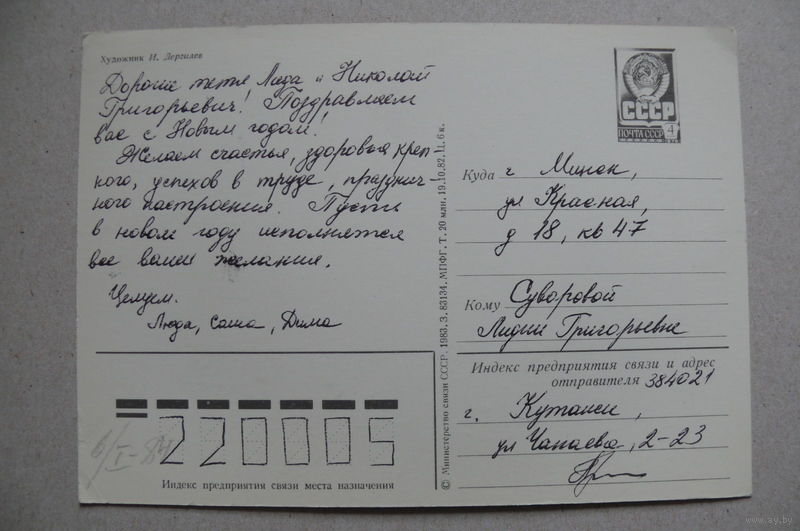 Художник И. Дергилев
Дорогие тетя Лида и Николай
Григорьевич! Поздравляем
вас с Новым годом!
Желаем счастья, здоровья креп-
кого, успехов в труде, празднич-
ного настроения. Пусть
в новом году исполнятся
все ваши желания.
Целуем.
Люда, Саша, Дима
220005
Индекс предприятия связи места назначения
6/I-84
© Министерство связи СССР. 1983. З. 83134. МПФГ. Т. 20 млн. 19.10.82. Ц. 6 к.
СССР
ПОЧТА СССР 4
Куда г. Минск,
ул Красная,
д 18, кв 47
Кому Суворовой
Лидии Григорьевне
Индекс предприятия связи и адрес
отправителя 384021
г. Кутаиси,
ул Чапаева, 2-23
www.ay.by